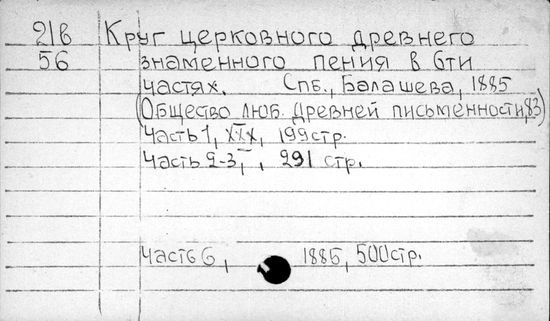 21в Круг церковного древнего
56 знаменного пения в 6ти
частях. Спб., Балашева, 1885
(Общество люб. древней письменности, 83)
Часть 1, XXX, 199 стр.
Часть 2-3, , 291 стр.
Часть 6, 1885, 500 стр.